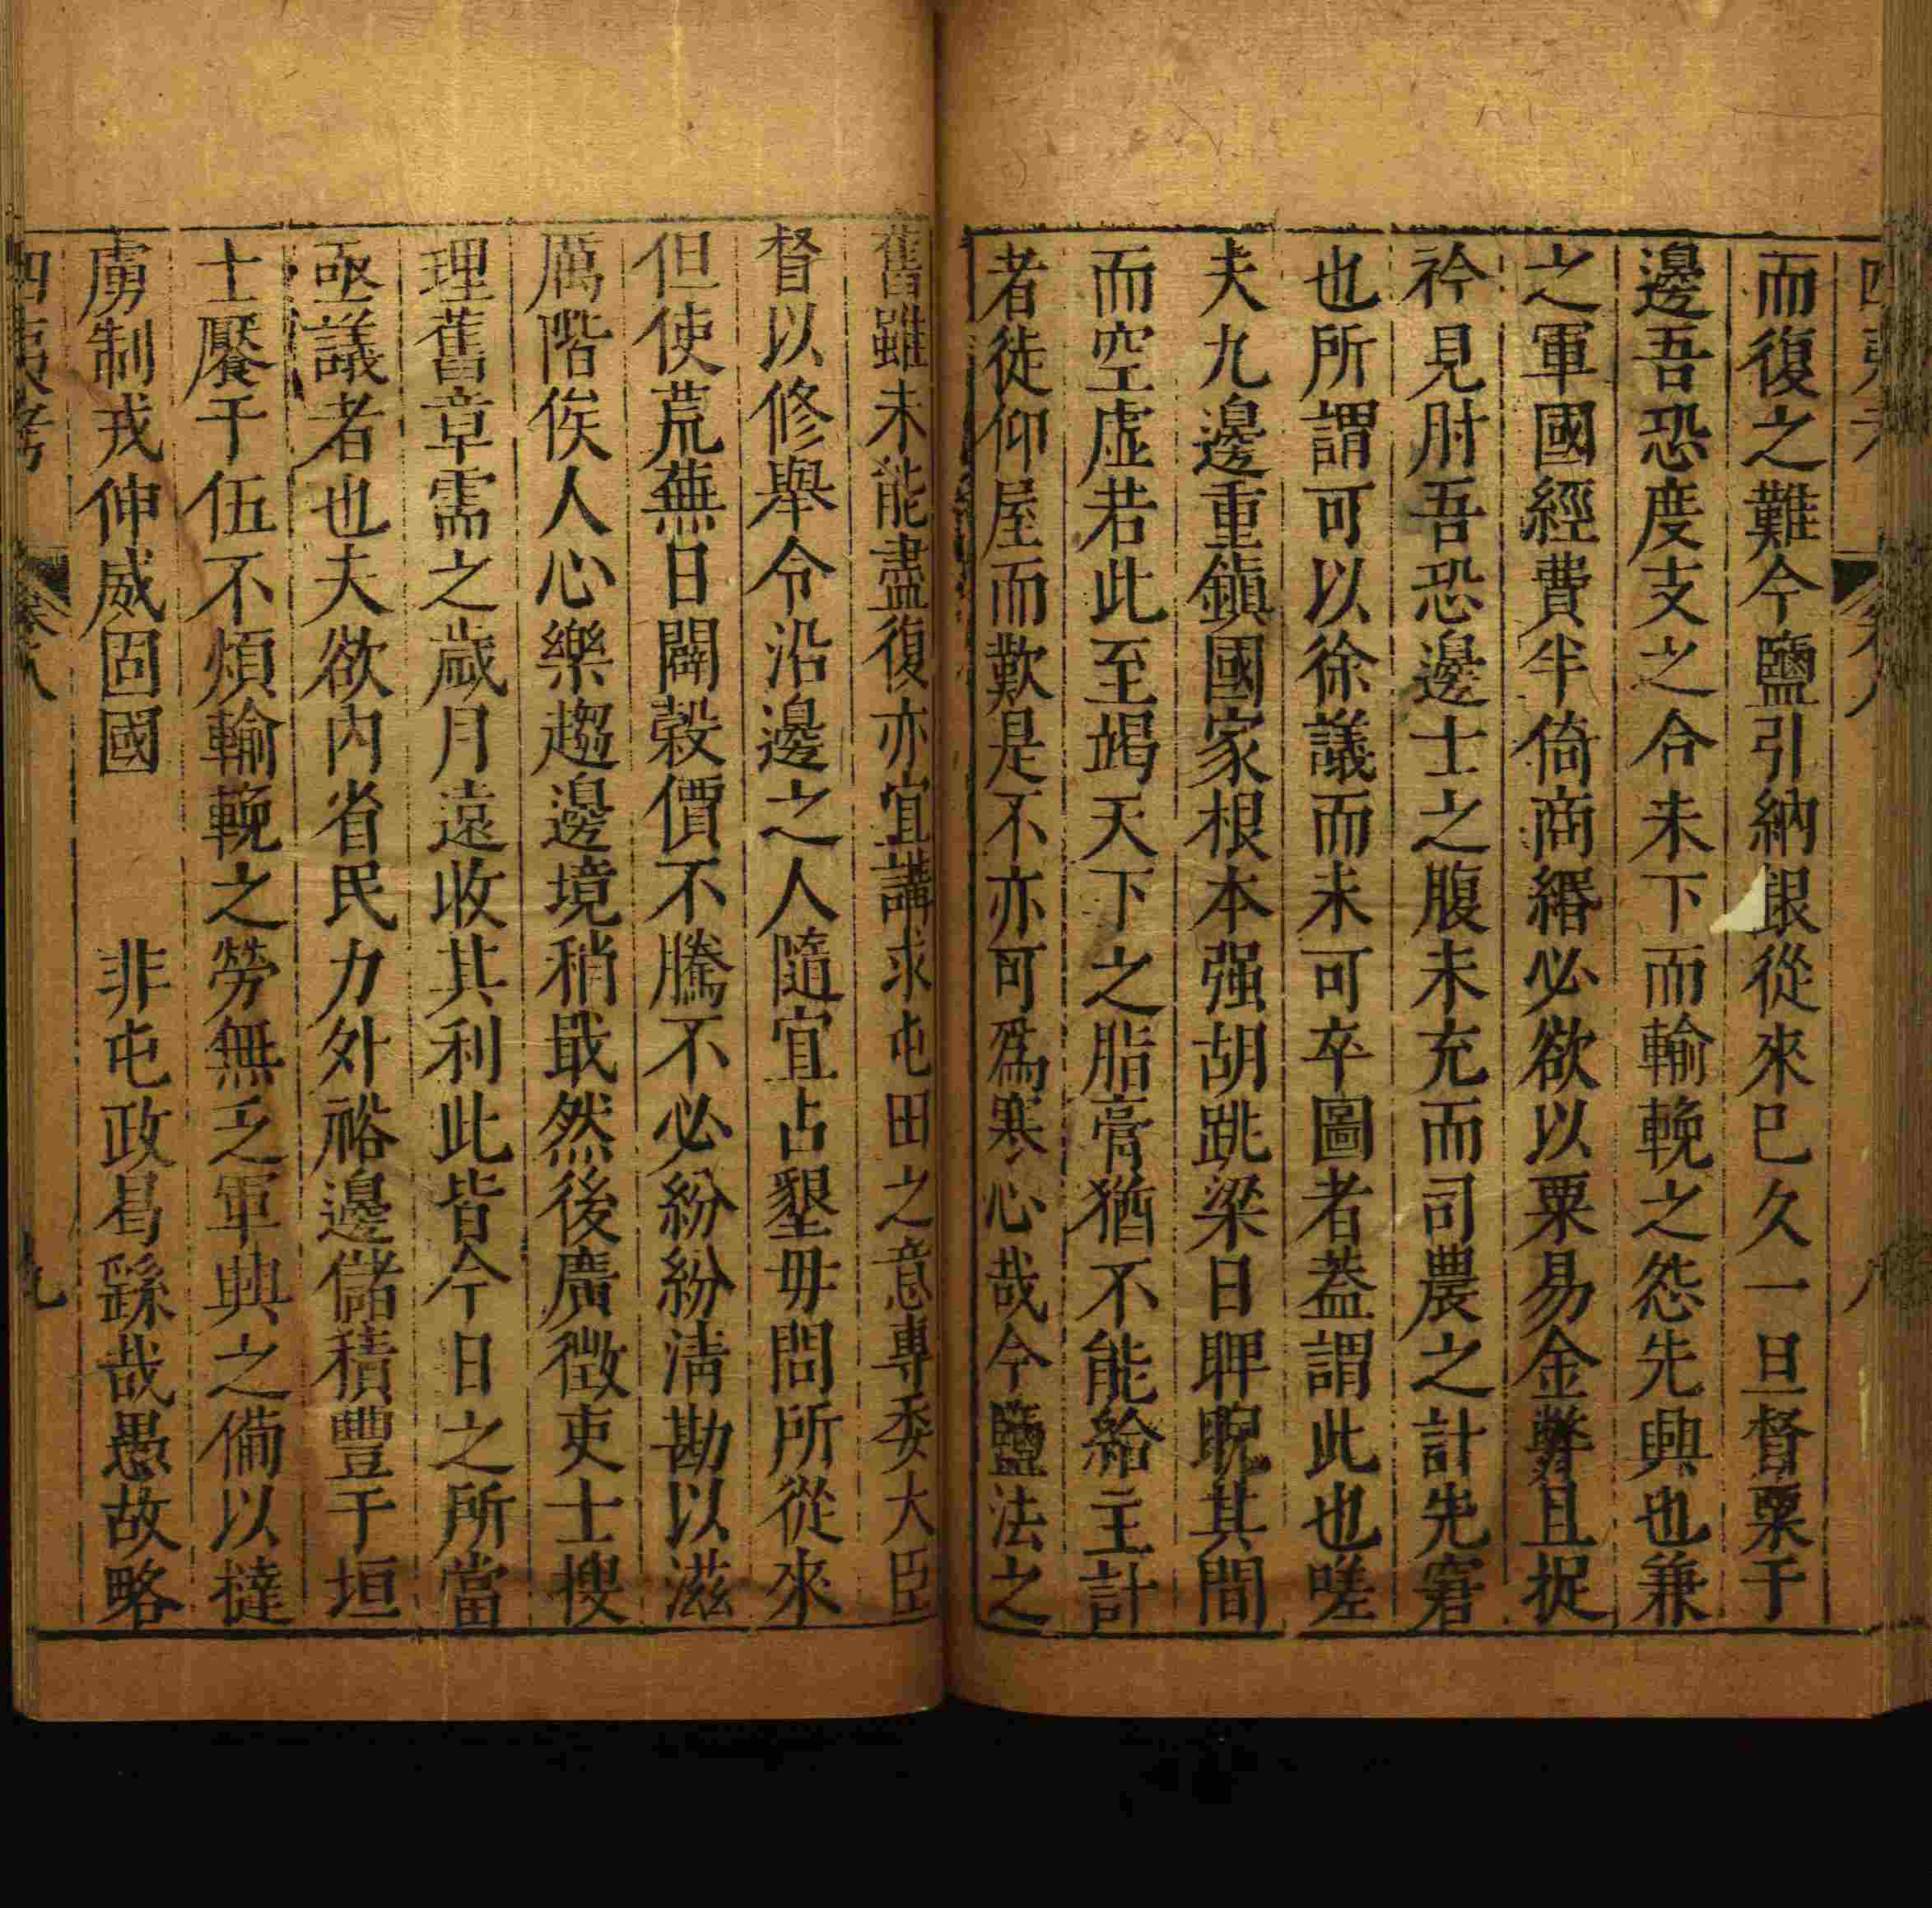 四夷考 卷八 八
而復之難今鹽引納銀從來已久一旦督粟于
邊吾恐度支之合未下而輸輓之怨先興也兼
之軍國經費半倚商緡必欲以粟易金弊且捉
衿見肘吾恐邊士之腹未充而司農之計先窘
也所謂可以徐議而未可卒圖者蓋謂此也嗟
夫九邊重鎮國家根本强胡跳梁日睥睨其間
而空虛若此至竭天下之脂膏猶不能給主計
者徒仰屋而歎是不亦可爲寒心哉今鹽法之
舊雖未能盡復亦宜講求屯田之意專委大臣
督以修舉令沿邊之人隨宜占墾毋問所從來
但使荒蕪日闢穀價不騰不必紛紛淸勘以滋
厲階俟人心樂趨邊境稍戢然後廣徵吏士搜
理舊章需之歲月遠收其利此皆今日之所當
亟議者也夫欲内省民力外裕邊儲積豐于垣
士饜于伍不煩輸輓之勞無乏軍興之備以撻
虜制戎伸威固國 非屯政曷繇哉愚故略
四夷考 卷八 九